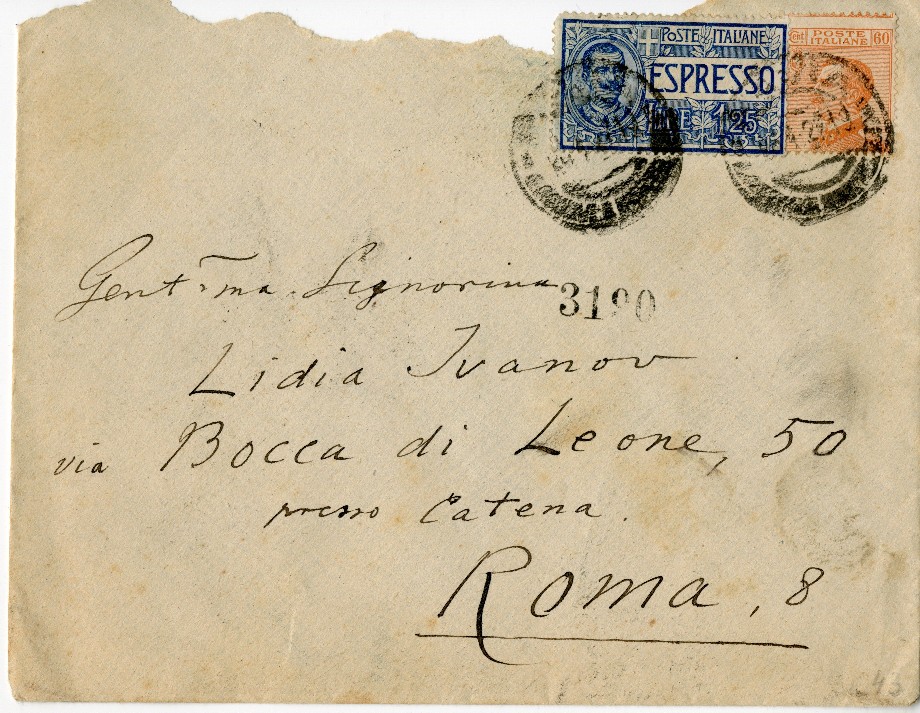 POSTE ITALIANE
ESPRESSO
LIRE 1,25
Cent POSTE ITALIANE 60
Gent-ma Signorina
3190
Lidia Ivanov
via Bocca di Leone, 50
presso Catena.
Roma, 8
43